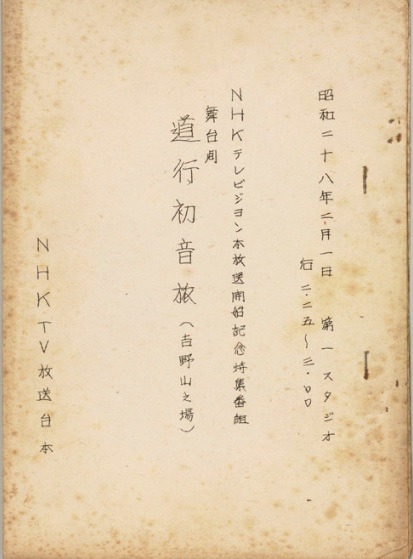 昭和二十八年二月一日　第一スタジオ
后二・二五～三・〇〇
NHKテレビジョン本放送開始記念特集番組
舞台
道行初音旅（吉野山之場）
NHKTV放送台本